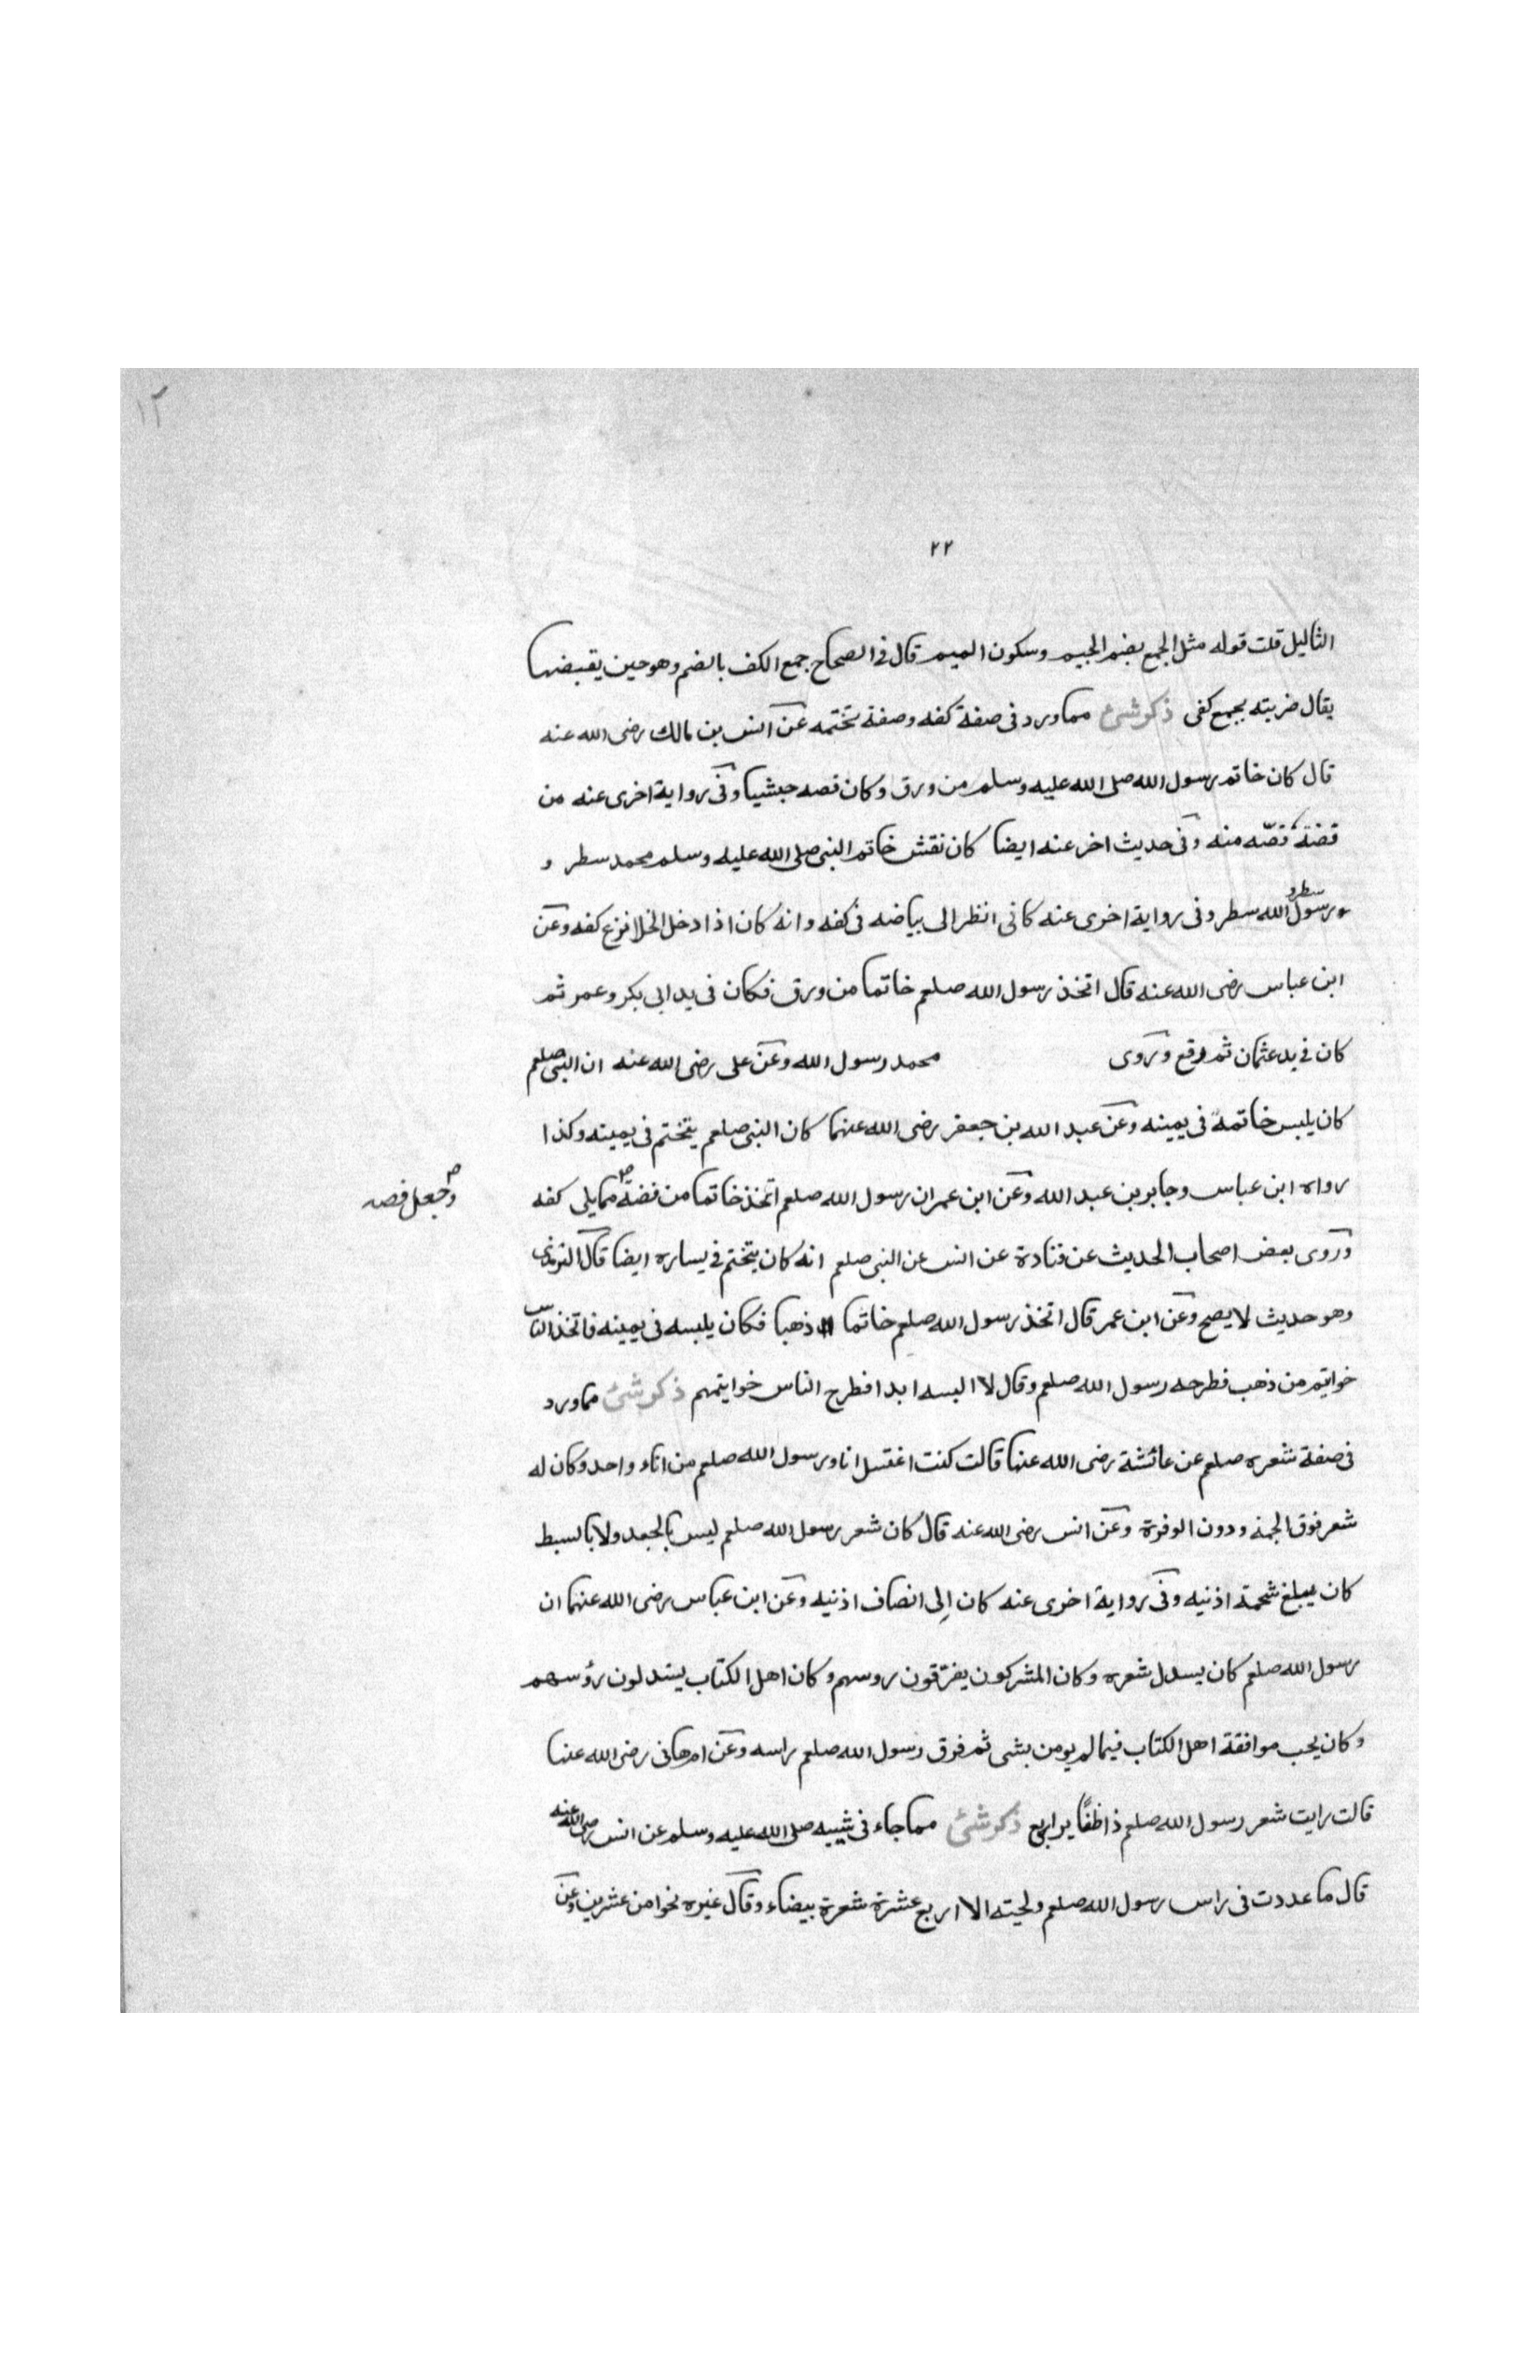 ١٢
٢٢
الثاليل قلت قوله مثل الجمع بضم الجيم وسكون الميم قال فى الصحاح جمع الكف بالضم وهو حين يقبضها
يقال ضربته بجمع كفى ذكر شئ مما ورد فى صفة كفه وصفة تختمه عن انس بن مالك رضى الله عنه
قال كان خاتم رسول الله صلى الله عليه وسلم من ورق وكان فصه حبشيا وفى رواية اخرى عنه من
فضة فصّه منه وفى حديث اخر عنه ايضا كان نقش خاتم النبى صلى الله عليه وسلم محمد سطر و
رسول سطر و الله سطر وفى رواية اخرى عنه كانى انظر الى بياضه فى كفه وانه كان اذا دخل الخلا نزع كفه وعن
ابن عباس رضى الله عنه قال اتخذ رسول الله صلعم خاتما من ورق فكان فى يد ابى بكر وعمر ثم
كان فى يد عثمان ثم وقع وروى محمد رسول الله وعن على رضى الله عنه ان النبى صلعم
كان يلبس خاتمه فى يمينه وعن عبد الله بن جعفر رضى الله عنهما كان النبى صلعم يتختم فى يمينه وكذا
رواه ابن عباس وجابر بن عبد الله وعن ابن عمر ان رسول الله صلعم اتخذ خاتما من فضة مما يلى كفه
وجعل فصه
وروى بعض اصحاب الحديث عن قتادة عن انس عن النبى صلعم انه كان يتختم فى يساره ايضا قال الترمذى
وهو حديث لا يصح وعن ابن عمر قال اتخذ رسول الله صلعم خاتما ذهبا فكان يلبسه فى يمينه فاتخذ الناس
خواتيم من ذهب فطرحه رسول الله صلعم وقال لا البسه ابدا فطرح الناس خواتيمهم ذكر شئ مما ورد
فى صفة شعره صلعم عن عائشة رضى الله عنها قالت كنت اغتسل انا ورسول الله صلعم من اناء واحد وكان له
شعر فوق الجمة ودون الوفرة وعن انس رضى الله عنه قال كان شعر رسول الله صلعم ليس بالجعد ولا بالسبط
كان يبلغ شحمة اذنيه وفى رواية اخرى عنه كان الى انصاف اذنيه وعن ابن عباس رضى الله عنهما ان
رسول الله صلعم كان يسدل شعره وكان المشركون يفرّقون روسهم وكان اهل الكتاب يسدلون رؤسهم
وكان يحب موافقة اهل الكتاب فيما لم يومن بشى ثم فرق رسول الله صلعم راسه وعن ام هانى رضى الله عنها
قالت رايت شعر رسول الله صلعم ذا ذكر شئ مما جاء فى شيبه صلى الله عليه وسلم عن انس رضى الله عنه
قال ما عددت فى راس رسول الله صلعم ولحيته الا اربع عشرة شعرة بيضاء وقال غيره نحوا من عشرين وعن